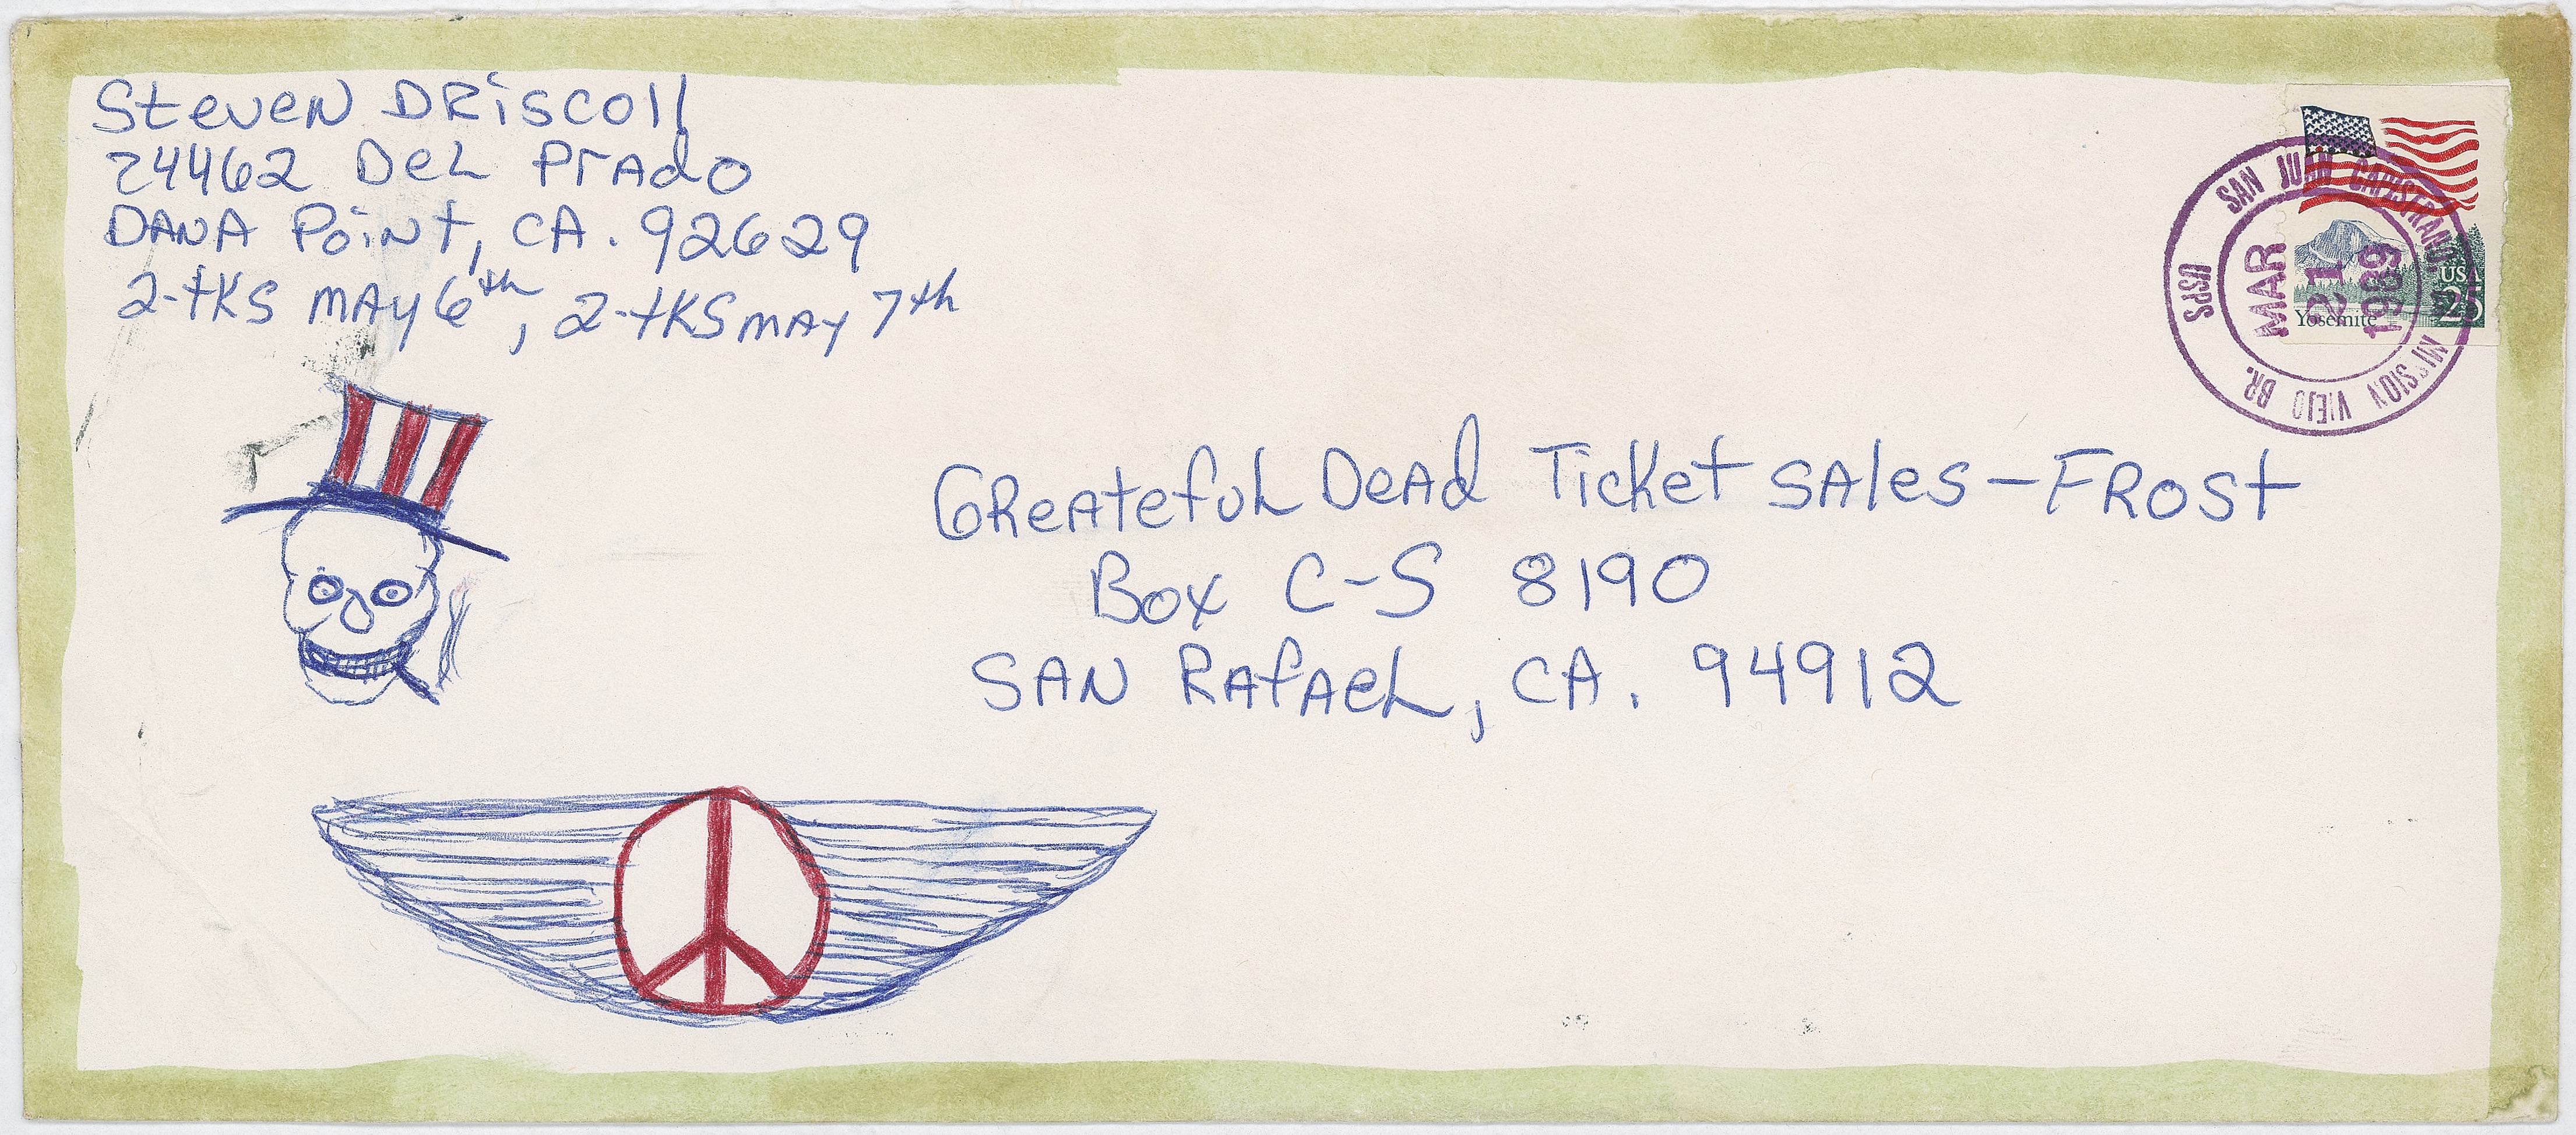 Steven Driscoll
24462 Del Prado
Dana Point, CA. 92629
2-tks May 6th, 2-tks May 7th
USPS SAN JUAN CAPISTRANO, CA MISSION VIEJO BR.
MAR
21
1989
USA
25
Yosemite
Greateful Dead Ticket Sales - Frost
Box C-S 8190
San Rafael, CA. 94912